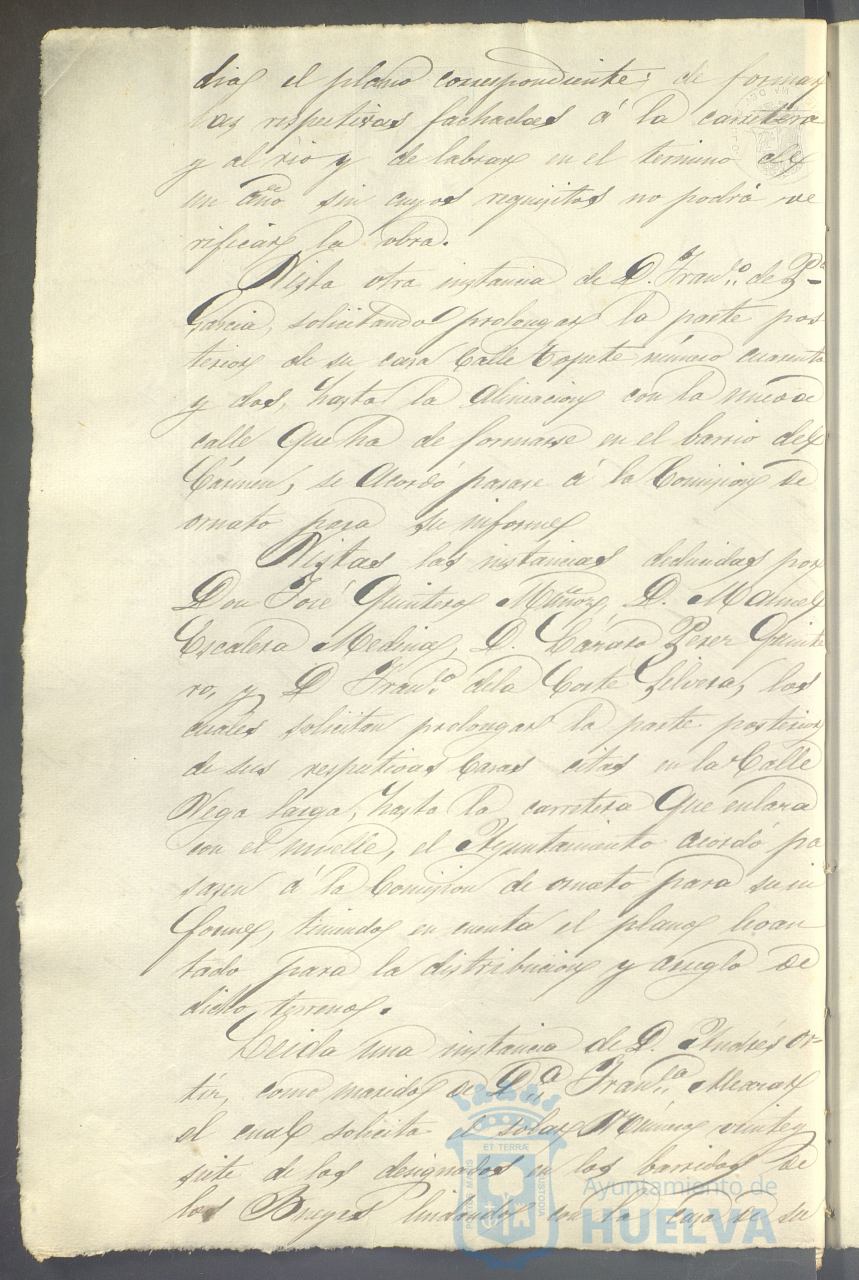 dias el plano correspondiente; de formar
las respetivas fachadas á la carretera
y al rio y de labrar en el termino de
un año sin cuyos requisitos no podrá ve
rificar la obra.
Vista otra instancia de D. Fran.co de P.a
Garcia, solicitando prolongar la parte pos
terior de su casa Calle Topete número cuarenta
y dos, hasta la alineacion con la nueva
calle que ha de formarse en el barrio del
Cármen, se acordó pasase á la Comision de
ornato para su informe
Vistas las instancias deducidas por
Don José Quintero Muñoz, D. Manuel
Escalera Medina, D. Lázaro Perez Quinte
ro, y D Fran.co dela Corte Gelvera, los
cuales solicitan prolongar la parte posterior
de sus respetivas Casas citas en la Calle
Vega larga, hasta la carretera que enlaza
con el muelle, el Ayuntamiento acordó pa
sasen á la Comision de ornato para su in
forme, teniendo en cuenta el plano levan
tado para la distribucion y arreglo de
dicho terreno.
Leida una instancia de D. Andrés Or-
tiz, como marido de D.a Fran.ca
el cual solicita el solar Número veinte y
siete de los designados en los barridos de
los lindando con la casa de su
ET TERRÆ
CUSTODIA
Ayuntamiento de
HUELVA